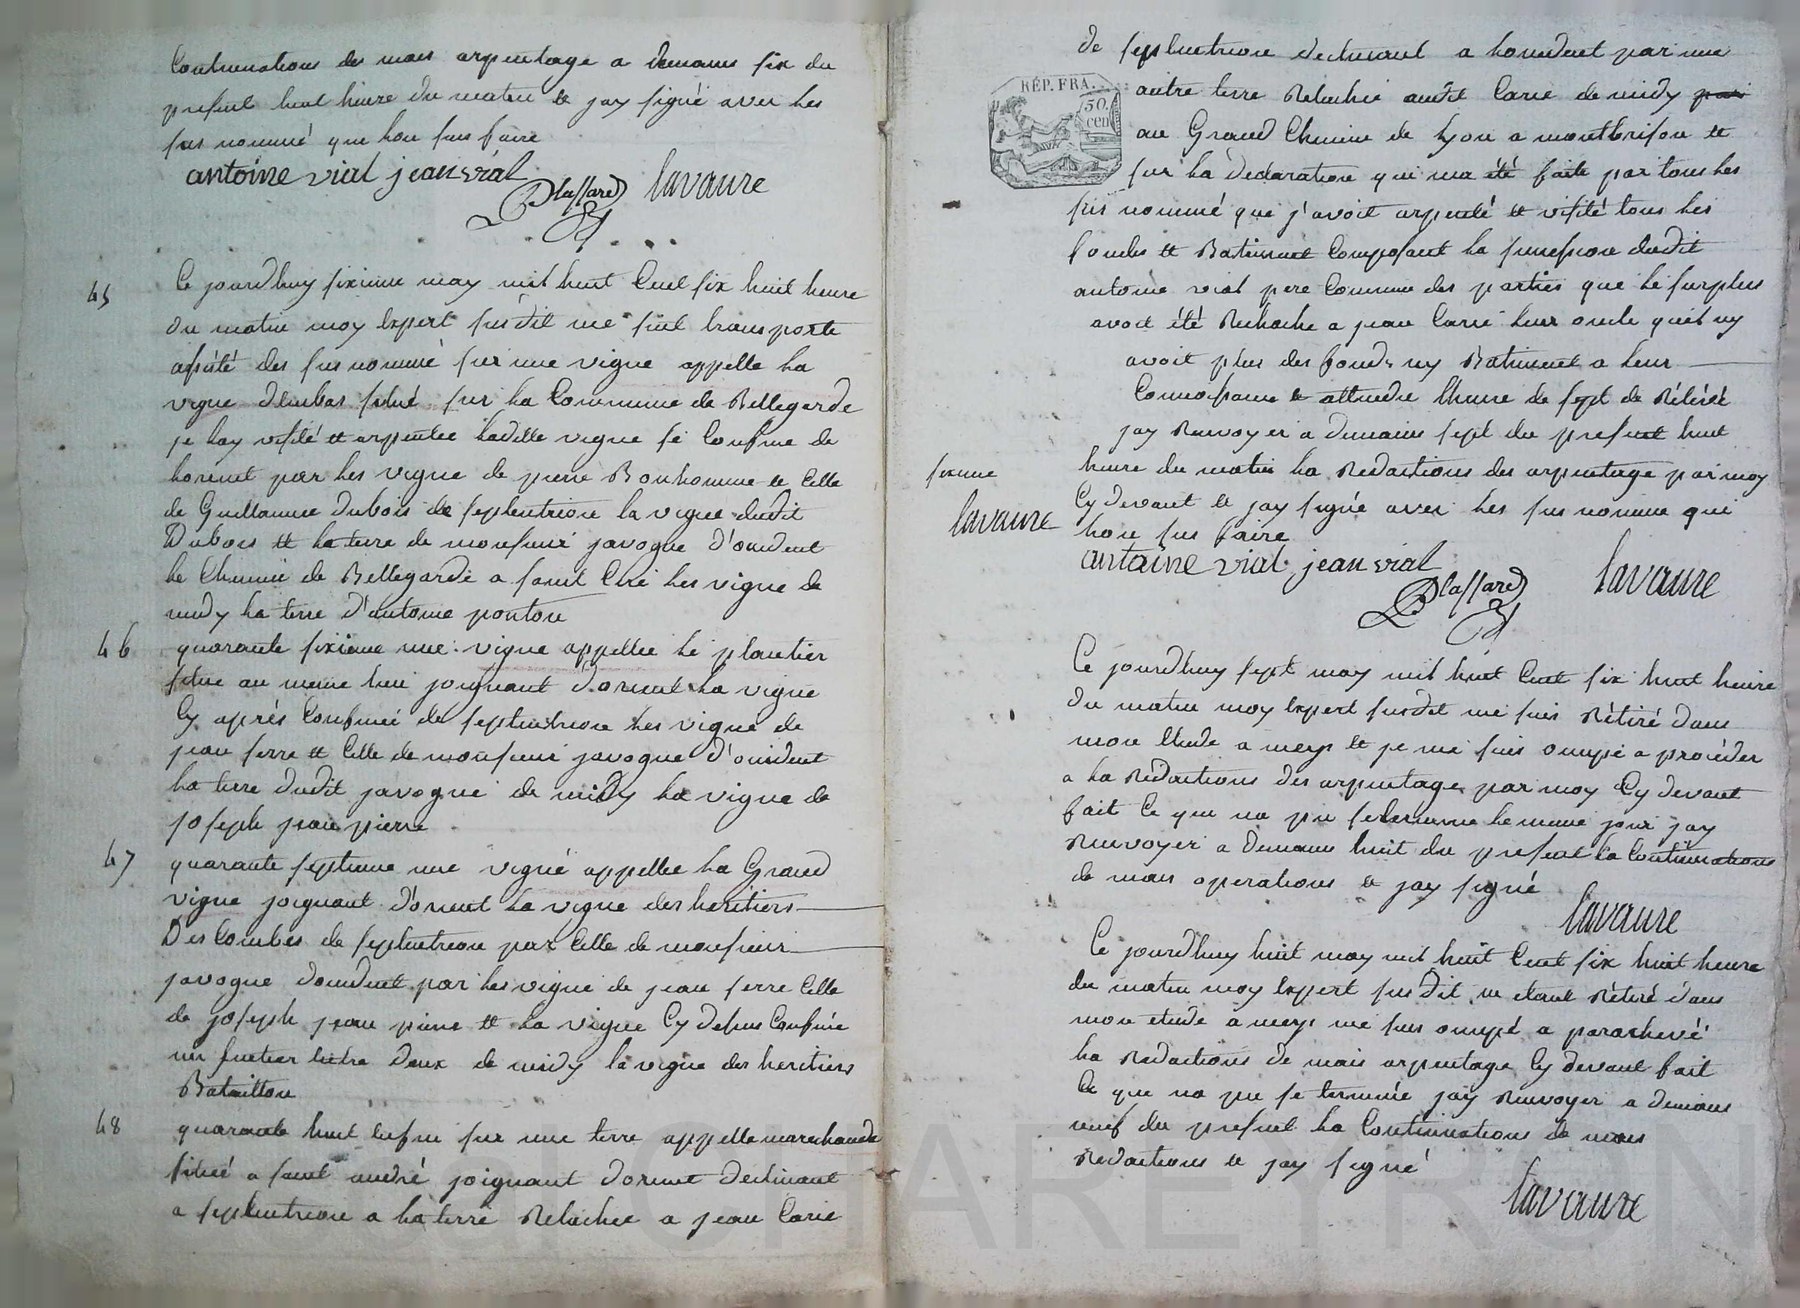 Continuations des mais arpentage a demains six du
present huit heure du matin et jay signé avec les
sus nommé que lon sus faire
antoine vial jean vial
Dlassard lavaure
45
Ce jourdhuy sixieme may mil huit Cent six huit heure
du matin moy Expert susdit me suit transporte
assisté des sus nommé sur une vigne appelle la
vigne d'embas situé sur la Commune de Bellegarde
je lay visité et arpentée laditte vigne se Confine de
lorient par les vigne de pierre Bonhomme et Celle
de Guillaume Dubois de septentrion la vigne dudit
Dubois et la terre de monsieur javogue d'occident
le Chemin de Bellegarde a saint Cire les vigne de
midy la terre d'antoine ponton
46 quarante sixième une vigne appellée le plantier
situe au meme lieu joignant d'orient la vigne
Cy après Confinée de septentrion les vigne de
jean ferre et Celle de monsieur javogue d'occident
la terre dudit javogue de midy la vigne de
joseph jean pierre
47 quarante septieme une vigne appellee la Grand
vigne joignant d'orient la vigne des heritiers
Des Combes de septentrion par Celle de monsieur
javogue doccident par les vigne de jean ferre Celle
de joseph jean pierre et la vigne Cy desus Confinée
un sentier entre deux de midy la vigne des heritiers
Bataillon
48 quarante huit enfin sur une terre appelle marechaude
situé a saint andré joignant dorient declinant
a septentrion a la terre Relachee a jean Carie
de septentrion declinant a loccident par une
RÉP. FRA.
50.
cen
autre terre Relachée audit Carie de midy par
au Grand Chemin de Lyon a montbrison et
sur la declaration qui ma été faite par tous les
sus nommé que j'avoit arpenté et visité tous les
fonds et Batiment Composant la succession dudit
antoine vial pere Commun des parties que le surplus
avoit été Relache a jean Carié leur oncle quil ny
avoit plus des fonds ny Batiment a leur
Connoissance et attendu lheure de sept de Rélévé
jay Renvoyer a demains sept du present huit
sixieme
heure du matin la Redactions des arpentage par moy
lavaure
Cy devant et jay signé avec les sus nomme qui
lon sus faire
antoine vial jean vial
Dlassard lavaure
Ce jourdhuy sept may mil huit Cent six huit heure
du matin moy Expert susdit me suis Rétiré dans
mon Etude a meys et je me suis occupé a procéder
a la Rédactions des arpentage par moy Cy devant
fait Ce que na pu se terminer le meme jour jay
Renvoyer a demains huit du present la Continuations
de mais operations et jay signé
lavaure
Ce jourdhuy huit may mil huit Cent six huit heure
du matin moy Expert susdit m etant Rétiré dans
mon etude a meys me suis occupé a parachevé
la Redactions de mais arpentage Cy devant fait
Ce que na pu se terminée jay Renvoyer a demains
neuf du present la Continuations de mais
Redactions et jay signé
lavaure
CHAREYRON